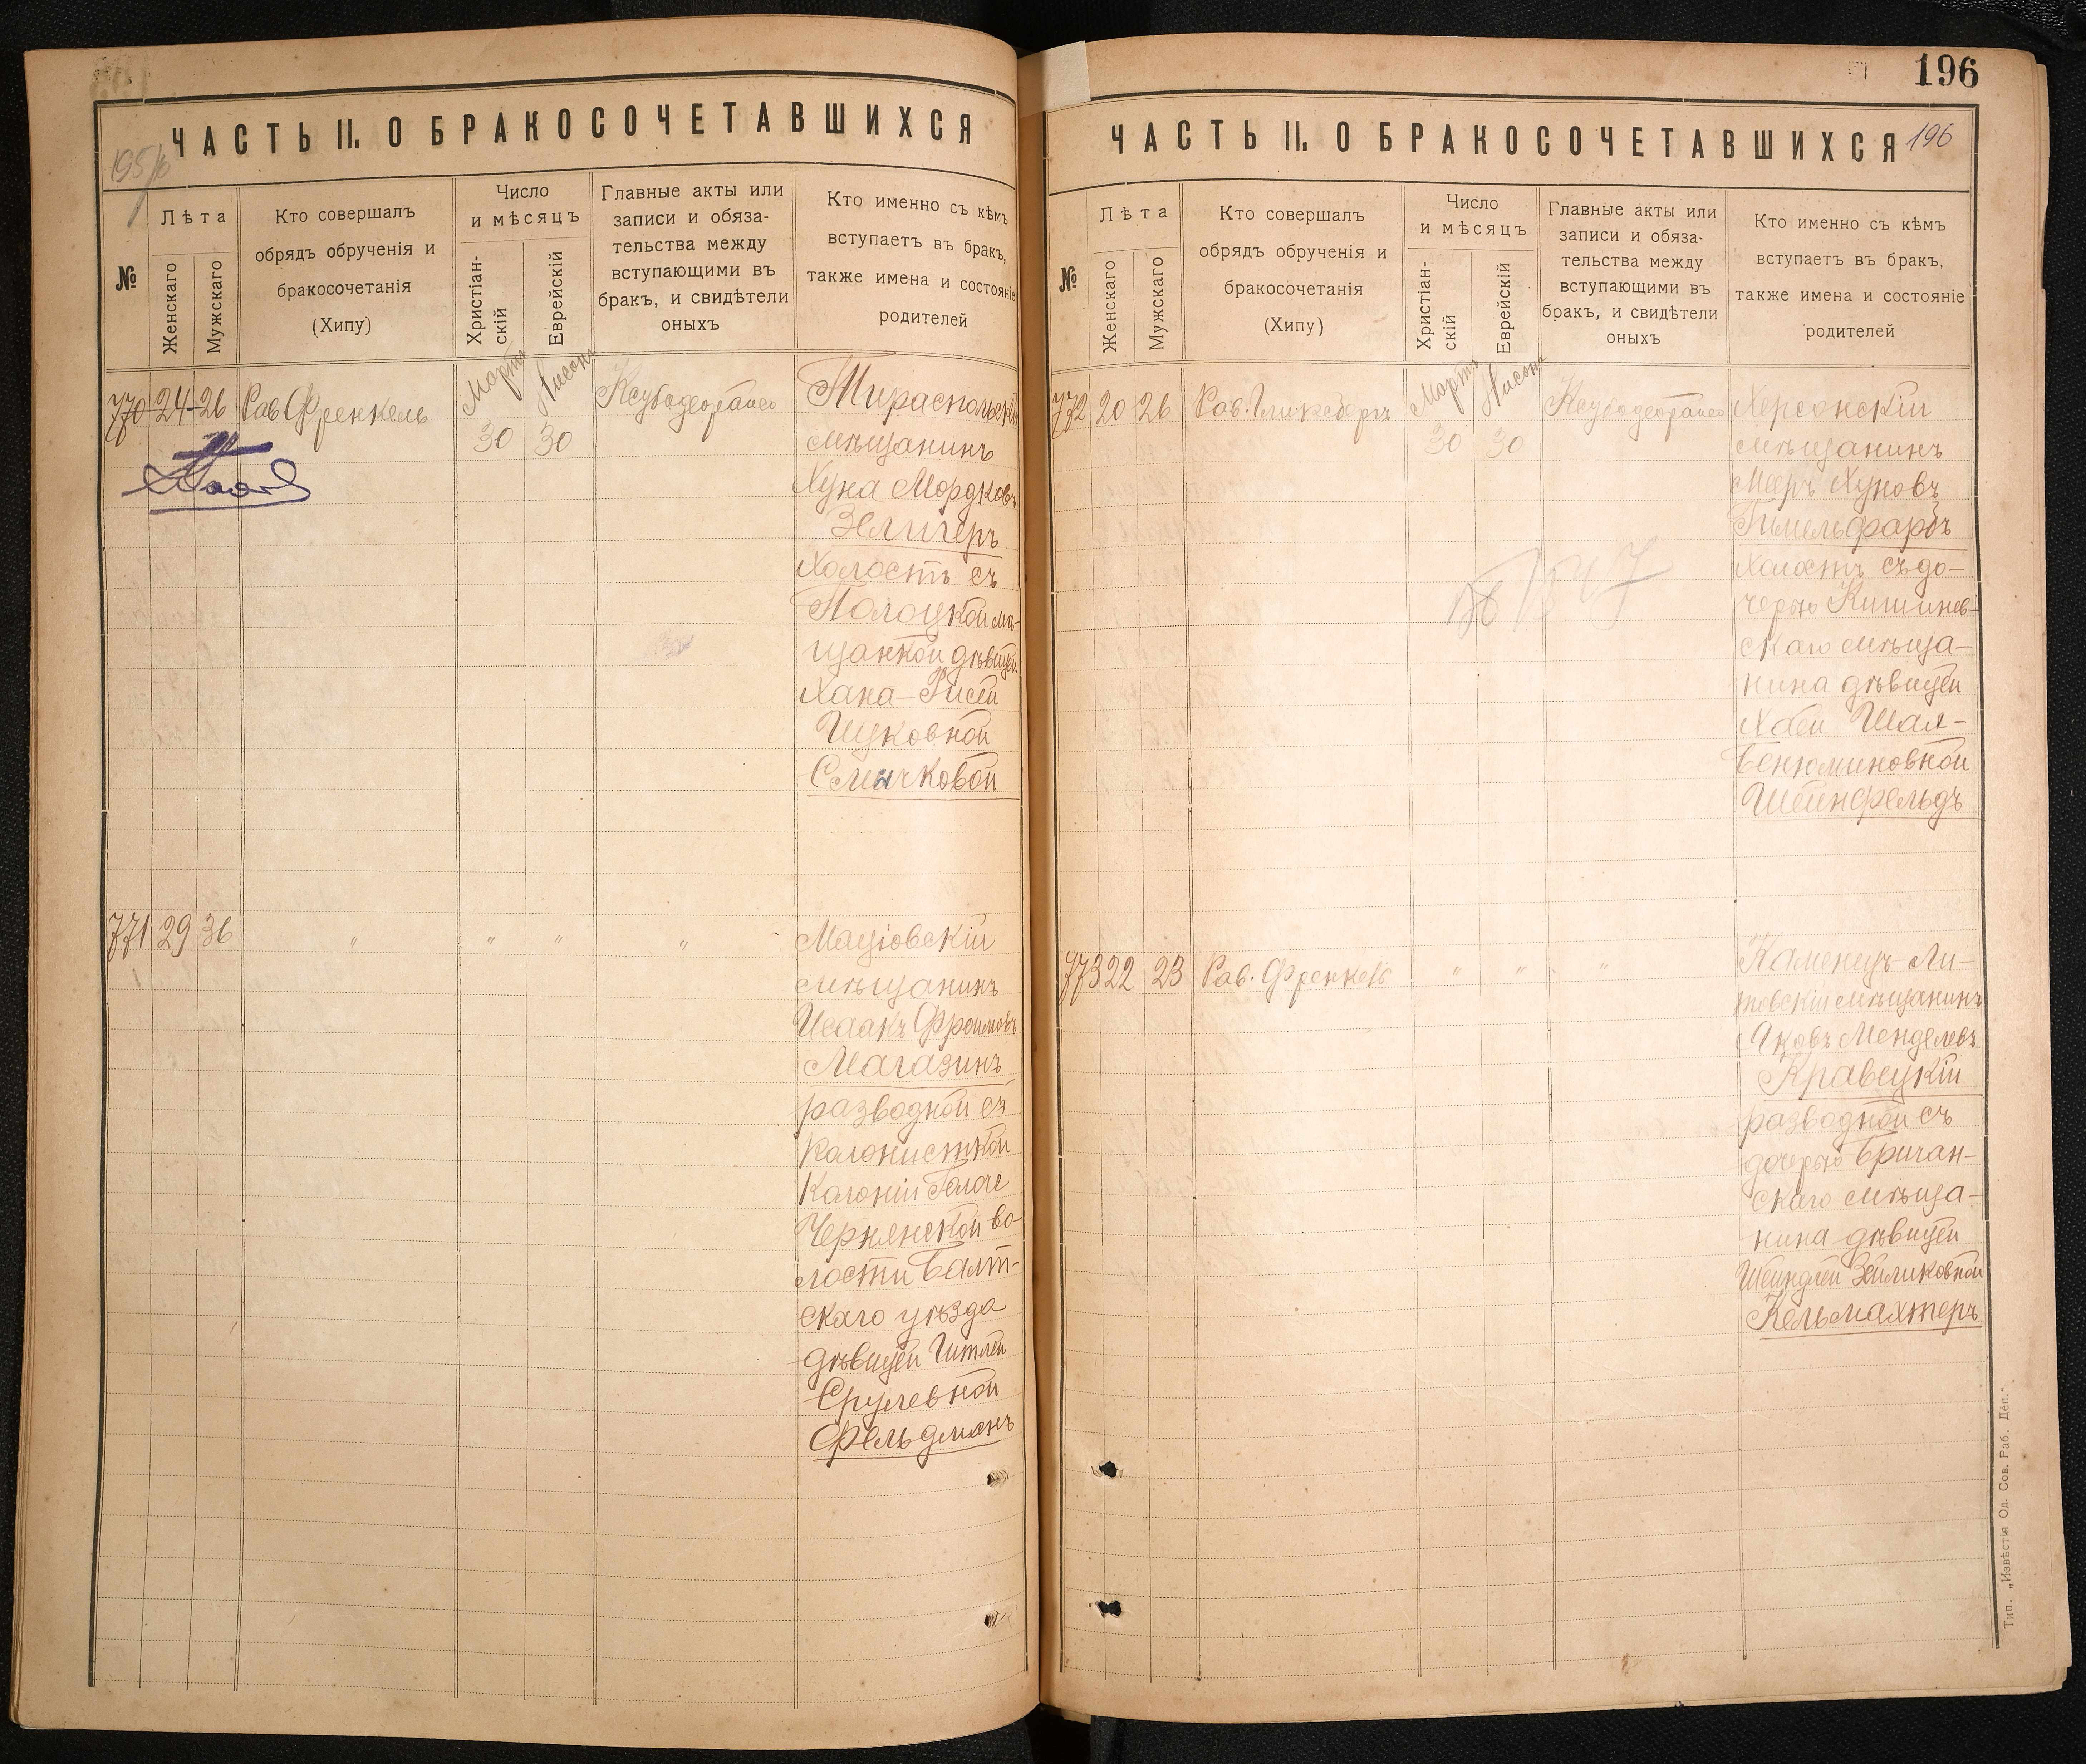 ЧАСТЬ II. О БРАКОСОЧЕТАВШИХСЯ
№
Лѣта
Женскаго
Мужскаго
Кто совершалъ
обрядъ обрученія и
бракосочетанія
(Хипу)
Число
и мѣсяцъ
Христіан-
скій
Еврейскій
Главные акты или
записи и обяза-
тельства между
вступающими въ
бракъ, и свидѣтели
оныхъ
Кто именно съ кѣмъ
вступаетъ въ бракъ,
также имена и состояніе
родителей
770 24 26 Рав Френкель
Марта 30
Нисонъ 30
Тираспольскій
мѣщанинъ
Хуна Мордковъ
Зелигеръ
холостъ съ
Полоцкой мѣ-
щанкой дѣвицей
Хана-Рисей
Ицковной
Смычковой
771 29 36 " " " "
Маціовскій
мѣщанинъ
Исаакъ Фроимовъ
Магазинъ
разводной съ
колонисткой
колоніи Голаче
Чернянской во-
лости Балт-
скаго уѣзда
дѣвицей Гитлей
Срулевной
Фельдманъ
196
ЧАСТЬ II. О БРАКОСОЧЕТАВШИХСЯ
196
№
Лѣта
Женскаго
Мужскаго
Кто совершалъ
обрядъ обрученія и
бракосочетанія
(Хипу)
Число
и мѣсяцъ
Христіан-
скій
Еврейскій
Главные акты или
записи и обяза-
тельства между
вступающими въ
бракъ, и свидѣтели
оныхъ
Кто именно съ кѣмъ
вступаетъ въ бракъ,
также имена и состояніе
родителей
772 20 26 Рав. Гликсбергъ
Марта 30
Нисонъ 30
Херсонскій
мѣщанинъ
Мееръ Хуновъ
Гимельфарбъ
холостъ съ до-
черью Кишинев-
скаго мѣща-
нина дѣвицей
Хаей Шая-
Бенюминовной
Штейнфельдъ
773 22 23 Рав. Френкель " " "
Каменецъ-Ли-
товскій мѣщанинъ
Яковъ Менделевъ
Кравецкій
разводной съ
дочерью Бричан-
скаго мѣща-
нина дѣвицей
Шейндлей Зейликовной
Кельмахтеръ
Тип. „Извѣстія Од. Сов. Раб. Деп.“